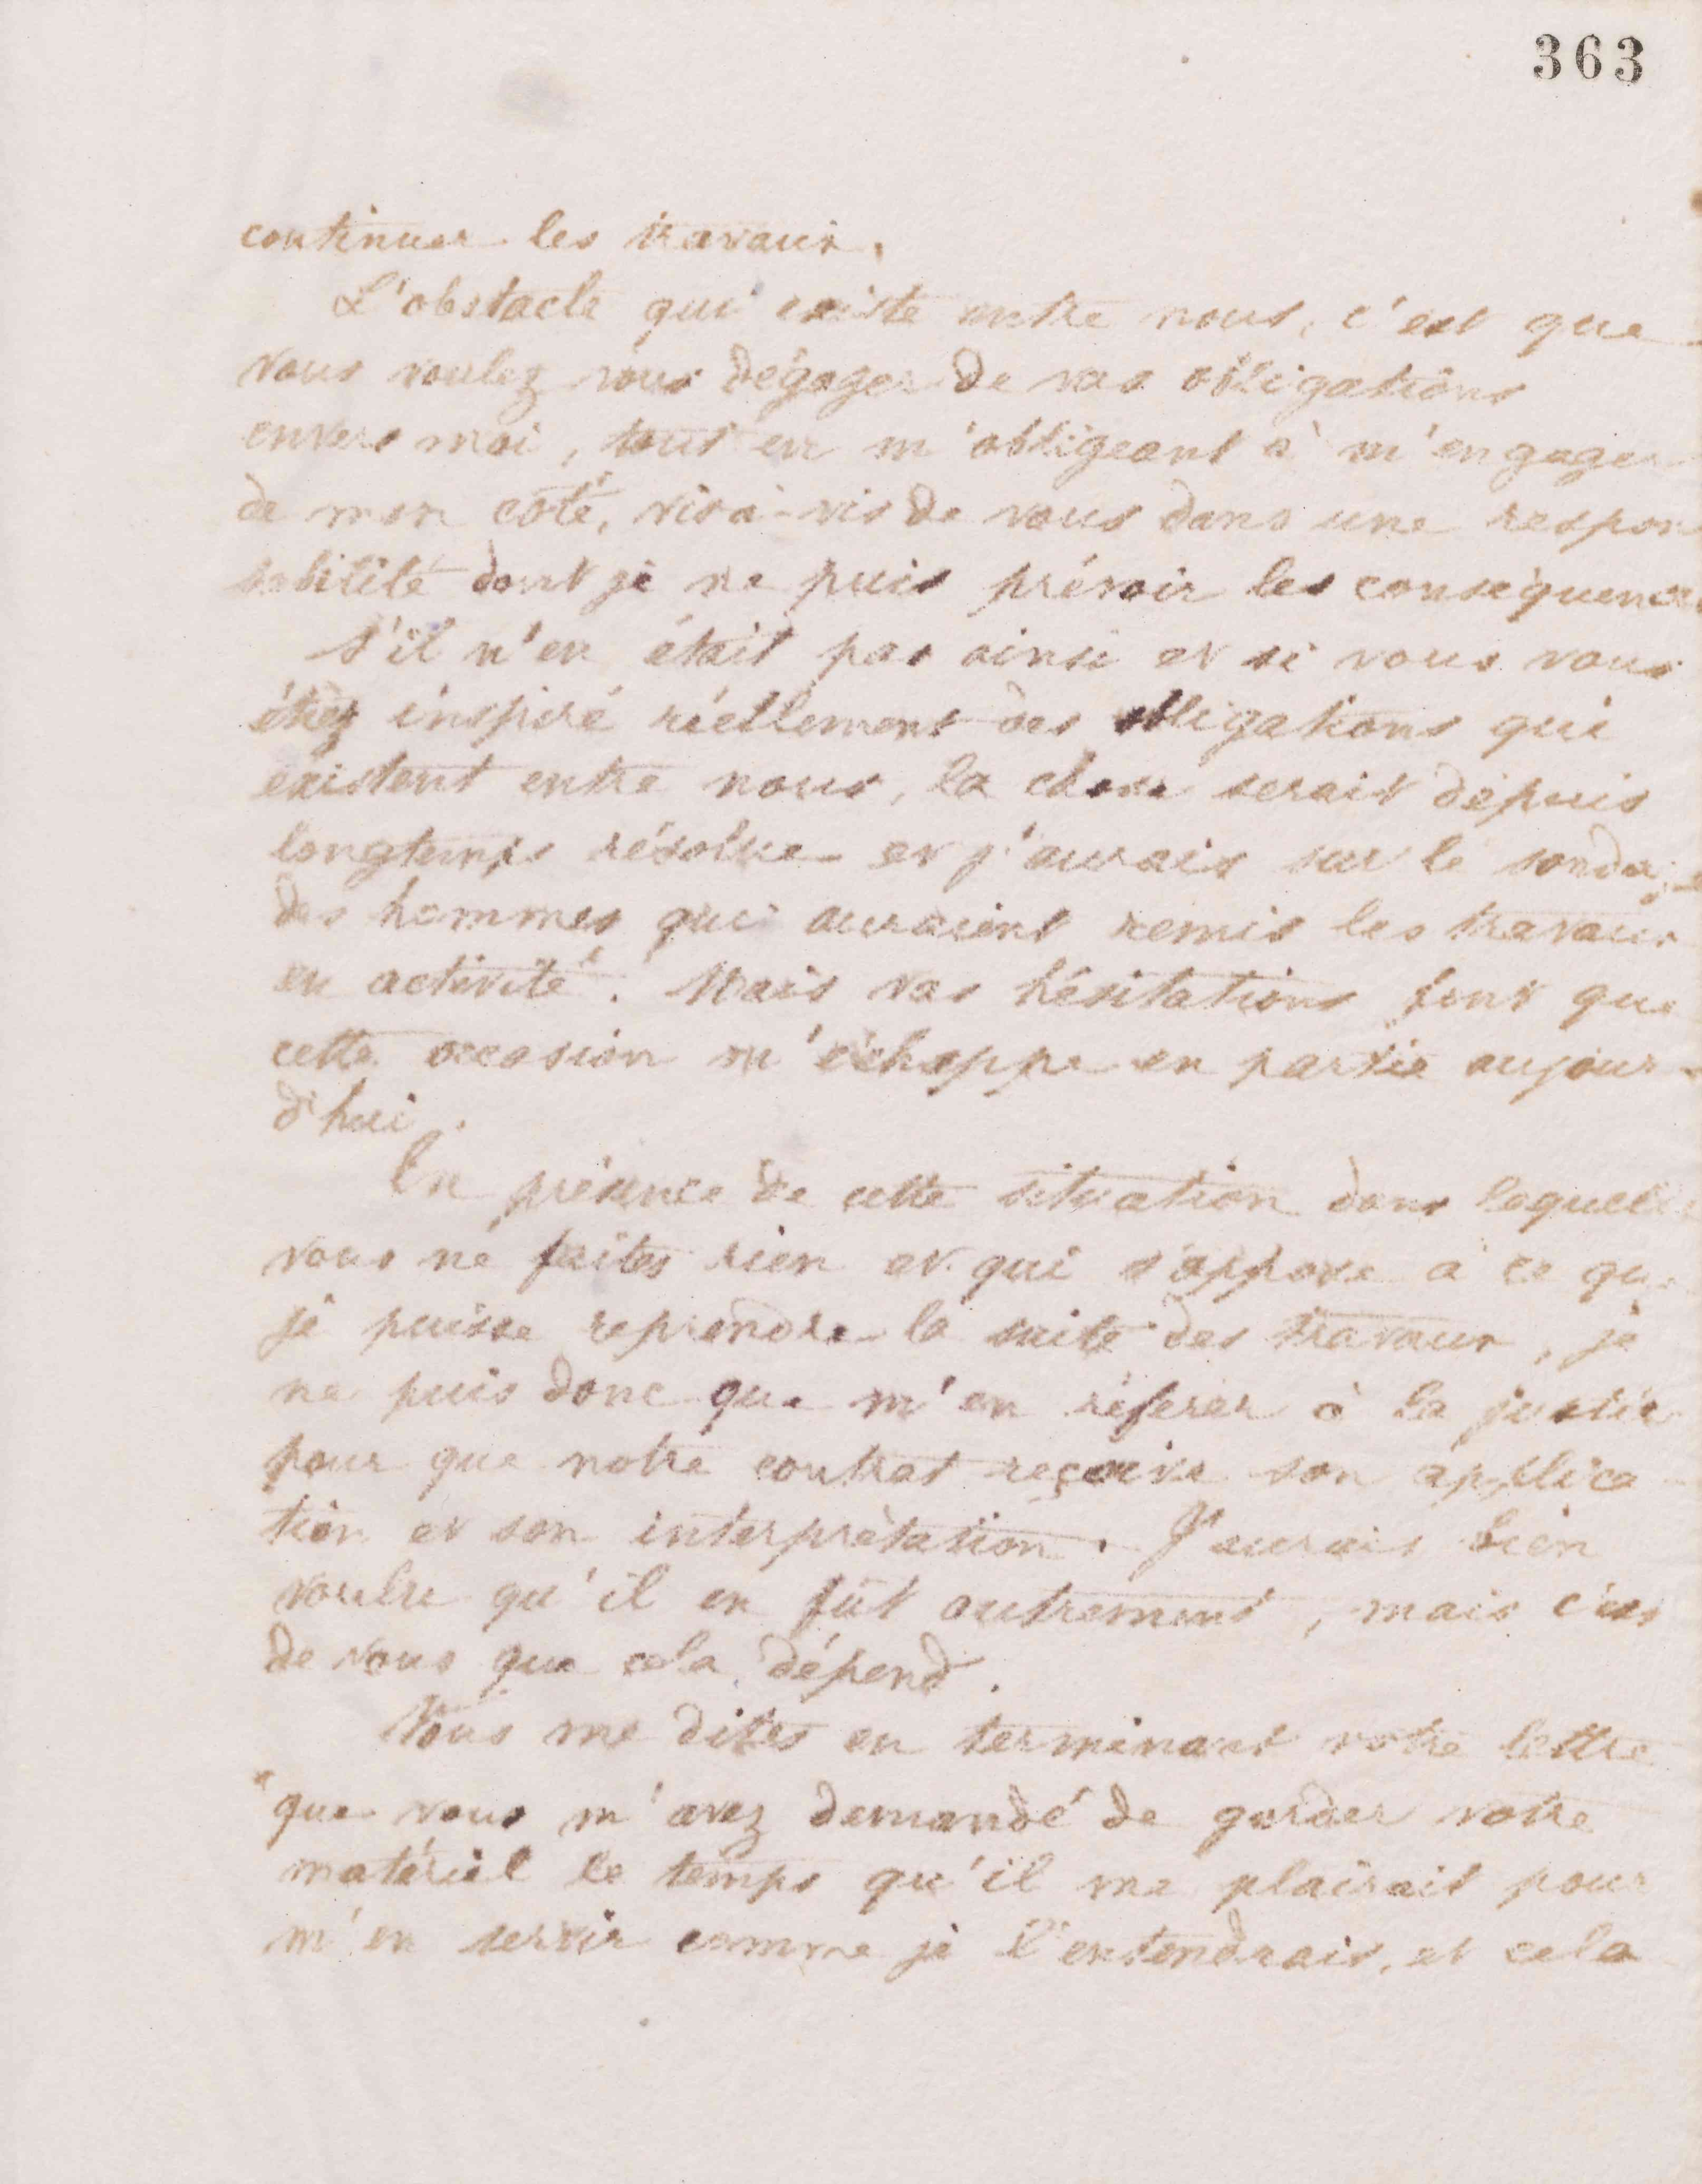 363
continuer les travaux.
L'obstacle qui existe entre nous, c'est que
vous voulez vous dégager de vos obligations
envers moi, tout en m'obligeant à m'engager
de mon côté, vis à-vis de vous dans une respon
sabilité dont je ne puis prévoir les conséquences
S'il n'en était pas ainsi et si vous vous
étiez inspiré réellement des obligations qui
existent entre nous, la chose serait depuis
longtemps résolue et j'aurais sur le sondage
des hommes qui auraient remis les travaux
en activité. Mais vos hésitations font que
cette occasion m'échappe en partie aujour-
d'hui.
En présence de cette situation dans laquelle
vous ne faites rien et qui s'oppose à ce que
je puisse reprendre la suite des travaux, je
ne puis donc que m'en référer à la justice
pour que notre contrat reçoive son applica
tion et son interprétation. J'aurais bien
voulu qu'il en fût autrement, mais c'est
de vous que cela dépend.
Vous me dites en terminant votre lettre
"que vous m'avez demandé de garder votre
matériel le temps qu'il me plairait pour
m'en servir comme je l'entendrais, et cela